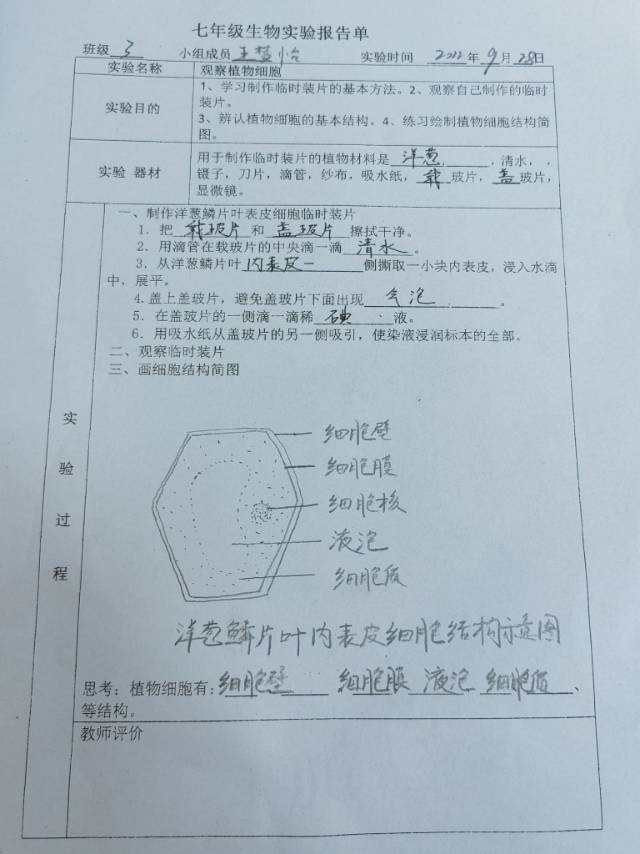 七年级生物实验报告单
班级 3 小组成员 王梦怡 实验时间 2022年9月28日
实验名称 观察植物细胞
实验目的
1、学习制作临时装片的基本方法。2、观察自己制作的临时
装片。
3、辨认植物细胞的基本结构。4、练习绘制植物细胞结构简
图。
实验 器材
用于制作临时装片的植物材料是 洋葱 ，清水，，
镊子，刀片，滴管，纱布，吸水纸，载玻片，盖玻片，
显微镜。
实验过程
一、制作洋葱鳞片叶表皮细胞临时装片
1．把 载玻片 和 盖玻片 擦拭干净。
2．用滴管在载玻片的中央滴一滴 清水 。
3．从洋葱鳞片叶内表皮一侧撕取一小块内表皮，浸入水滴
中，展平。
4.盖上盖玻片，避免盖玻片下面出现 气泡 。
5．在盖玻片的一侧滴一滴稀 碘 液。
6．用吸水纸从盖玻片的另一侧吸引，使染液浸润标本的全部。
二、观察临时装片
三、画细胞结构简图
细胞壁
细胞膜
细胞核
液泡
细胞质
洋葱鳞片叶内表皮细胞结构示意图
思考：植物细胞有：细胞壁 细胞膜 液泡 细胞质、
等结构。
教师评价